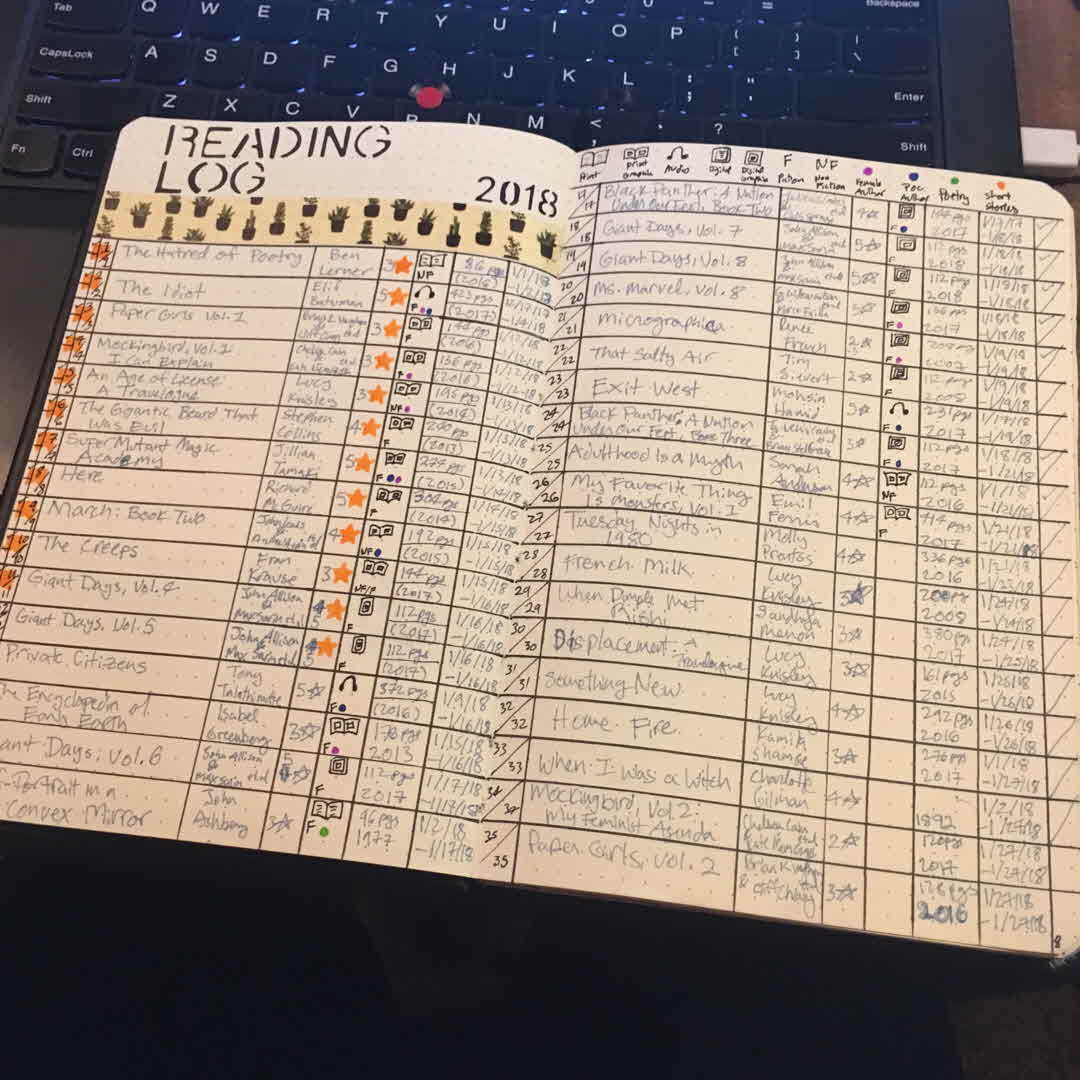 Tab Q W E R T Y U I O P Backspace
CapsLock A S D F G H J K L ; " Enter
Shift Z X C V B N M < ? Shift
Fn Ctrl
READING
LOG
2018
The Hatred of Poetry Ben Lerner 3 NF 86 pgs (2016) 1/1/18
The Idiot Elif Batuman 5 F 423 pgs (2017) 12/17/17 -1/4/18
Paper Girls Vol. 1 3 F 144 pgs (2016)
Mockingbird, Vol. 1 I Can Explain 3 F 136 pgs (2016)
An Age of License A Travelogue Lucy Knisley 3 NF 195 pgs (2014) 1/13/18
The Gigantic Beard That Was Evil Stephen Collins 4 F 240 pgs (2013) 1/13/18 -1/13/18
Super Mutant Magic Academy Jillian Tamaki 5 F 274 pgs (2015) 1/13/18 -1/14/18
Here Richard McGuire 5 F 304 pgs (2014) 1/14/18 -1/15/18
March: Book Two John Lewis 4 NF 192 pgs (2015) 1/15/18 -1/15/18
The Creeps Fran Krause 3 NF/F 144 pgs (2017) 1/15/18 -1/16/18
Giant Days, Vol. 4 John Allison & Max Sarin et al 5 F 112 pgs (2017) 1/16/18 -1/16/18
Giant Days, Vol. 5 John Allison & Max Sarin et al 5 F 112 pgs (2017) 1/16/18 -1/16/18
Private Citizens Tony Tulathimutte 5 F 372 pgs (2016) 1/9/18 -1/16/18
The Encyclopedia of Early Earth Isabel Greenberg 3 F 176 pgs 2013 1/15/18 -1/16/18
ant Days: Vol. 6 John Allison & Max Sarin et al 5 F 112 pgs 2017 1/17/18 -1/17/18
-Portrait in a Convex Mirror John Ashbery 3 F 96 pgs 1977 1/2/18 -1/17/18
Print Print Graphic Audio Digital Digital Graphic F Fiction NF Non Fiction Female Author POC Author Poetry Short Stories
17 17 Black Panther: A Nation Under Our Feet, Book Two 4 F 144 pgs 2017 1/17/17 1/18/18
18 18 Giant Days, Vol. 7 John Allison & Max Sarin et al 5 112 pgs 2018 -1/18/18
19 19 Giant Days, Vol. 8 John Allison & Max Sarin et al 5 112 pgs 2018 1/19/18 -1/18/18
20 20 Ms. Marvel, Vol. 8 G Willow Wilson 5 F 136 pgs 2017 1/18/18 -1/18/18
21 21 Micrographica Renee French 2 F 208 pgs 2007 1/19/18 -1/19/18
22 22 That Salty Air Tim Sievert 2 F 112 pgs 2008 1/19/18 -1/19/18
23 23 Exit West Mohsin Hamid 5 F 231 pgs 2017 1/17/18 -1/19/18
24 24 Black Panther: A Nation Under Our Feet, Book Three 3 F 112 pgs 2017 1/18/18 -1/21/18
25 25 Adulthood Is a Myth Sarah Andersen 4 NF 112 pgs 2016 1/1/18 -1/21/18
26 26 My Favorite Thing Is Monsters, Vol. 1 Emil Ferris 4 F 414 pgs 2017 1/21/18 -1/21/18
27 27 Tuesday Nights in 1980 Molly Prentiss 4 336 pgs 2016 1/21/18 -1/23/18
28 28 French Milk Lucy Knisley 3 200 pgs 2008 1/24/18 -1/24/18
29 29 When Dimple Met Rishi Sandhya Menon 3 380 pgs 2017 1/24/18 -1/25/18
30 30 Displacement: A Travelogue Lucy Knisley 3 161 pgs 2015 1/25/18 -1/26/18
31 31 Something New Lucy Knisley 4 292 pgs 2016 1/26/18 -1/26/18
32 32 Home Fire Kamila Shamsie 3 276 pgs 2017 -1/27/18
33 33 When I Was a Witch Charlotte Gilman 4 1892 1/2/18 -1/27/18
34 34 Mockingbird, Vol 2: My Feminist Agenda Chelsea Cain 2 120 pgs 2017 1/27/18 -1/27/18
35 35 Paper Girls, Vol. 2 & Cliff Chiang 3 128 pgs 2016 1/27/18 -1/27/18
8